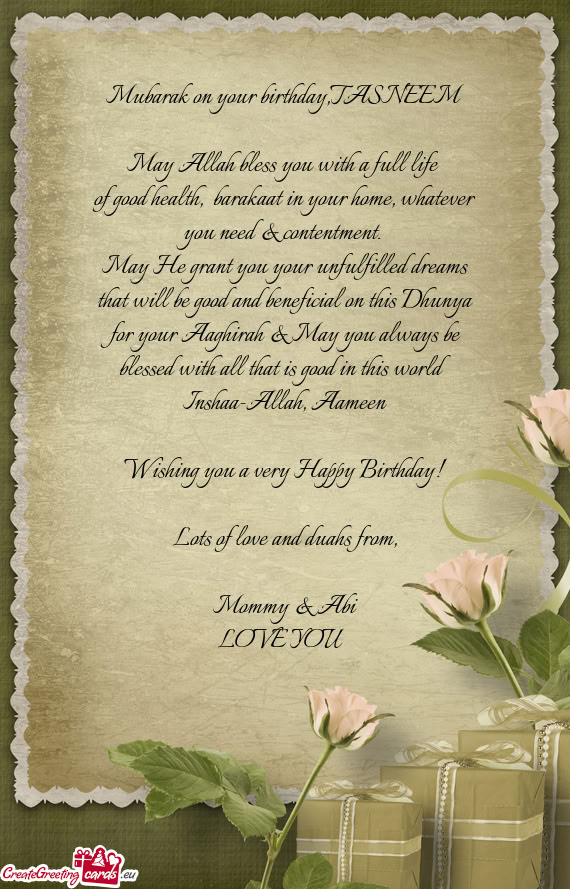 Mubarak on your birthday,TASNEEM
May Allah bless you with a full life
of good health, barakaat in your home, whatever
you need & contentment.
May He grant you your unfulfilled dreams
that will be good and beneficial on this Dhunya
for your Aaghirah & May you always be
blessed with all that is good in this world
Inshaa-Allah, Aameen
Wishing you a very Happy Birthday!
Lots of love and duahs from,
Mommy & Abi
LOVE YOU
CreateGreeting cards .eu